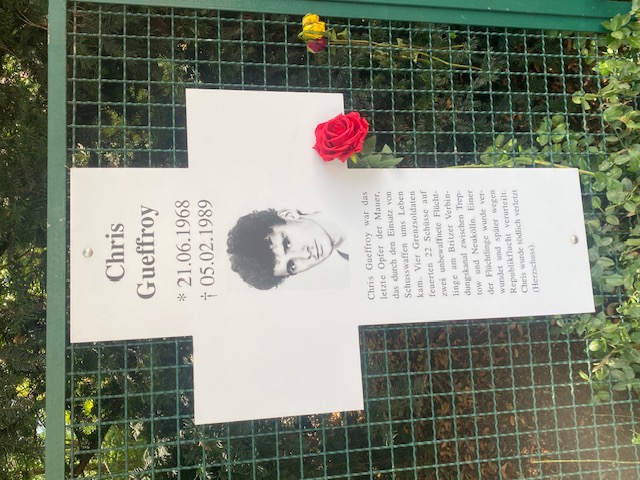 Chris
Gueffroy
* 21.06.1968
† 05.02.1989
Chris Gueffroy war das
letzte Opfer der Mauer,
das durch den Einsatz von
Schusswaffen ums Leben
kam. Vier Grenzsoldaten
feuerten 22 Schüsse auf
zwei unbewaffnete Flücht-
linge am Britzer Verbin-
dungskanal zwischen Trep-
tow und Neukölln. Einer
der Flüchtlinge wurde ver-
wundet und später wegen
Republikflucht verurteilt.
Chris wurde tödlich verletzt
(Herzschuss).